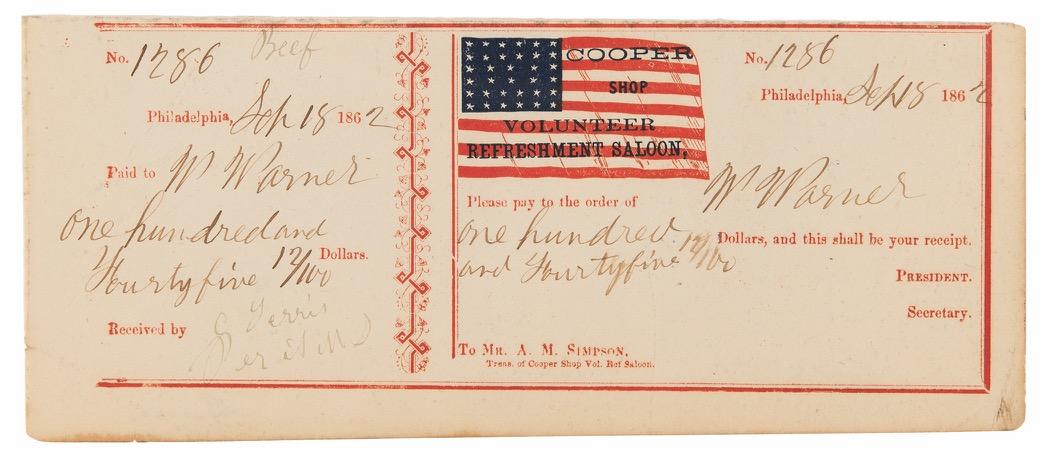 No. 1286 Beef
Philadelphia, Sep 18 1862
Paid to W Warner
One hundred and
Fourty five 12/100 Dollars.
Received by
COOPER
SHOP
VOLUNTEER
REFRESHMENT SALOON,
No. 1286
Philadelphia, Sep 18 1862
Please pay to the order of W Warner
One hundred
and Fourty five 12/100 Dollars, and this shall be your receipt.
PRESIDENT.
Secretary.
To MR. A. M. SIMPSON,
Treas. of Cooper Shop Vol. Ref Saloon.